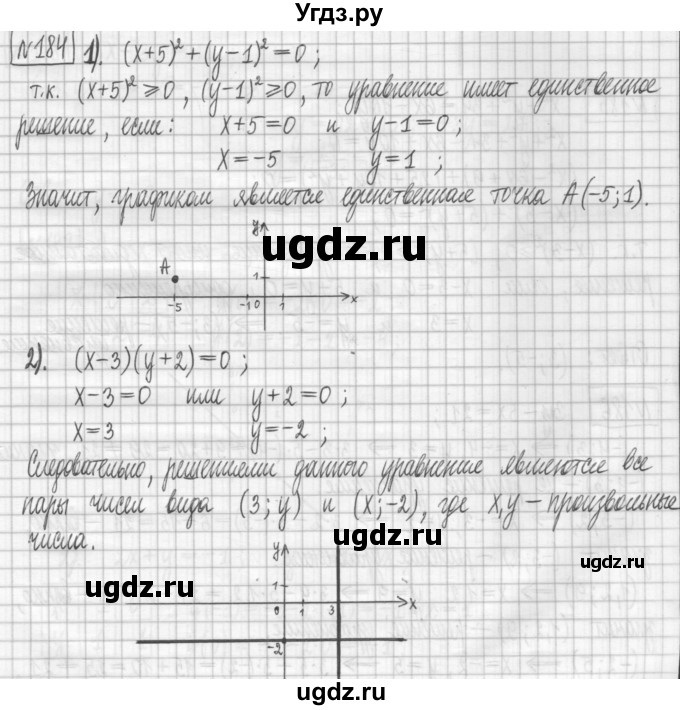 Угдз.ру
№184 1). (x+5)² + (y-1)² = 0 ;
т.к. (x+5)² ⩾ 0 , (y-1)² ⩾ 0, то уравнение имеет единственное
решение, если: x+5=0 и y-1=0 ;
x=-5 y=1 ;
Значит, графиком является единственная точка A(-5;1).
y
ugdz.ru
A 1
-5 -1 0 1 x
2). (x-3)(y+2)=0 ;
x-3=0 или y+2=0 ;
x=3 y=-2 ;
Следовательно, решениями данного уравнение являются все
пары чисел вида (3; y) и (x; -2), где x,y - произвольные
числа.
ugdz.ru
y
ugdz.ru
ugdz.ru
1
0 1 3 x
-2
ugdz.ru
ugdz.ru